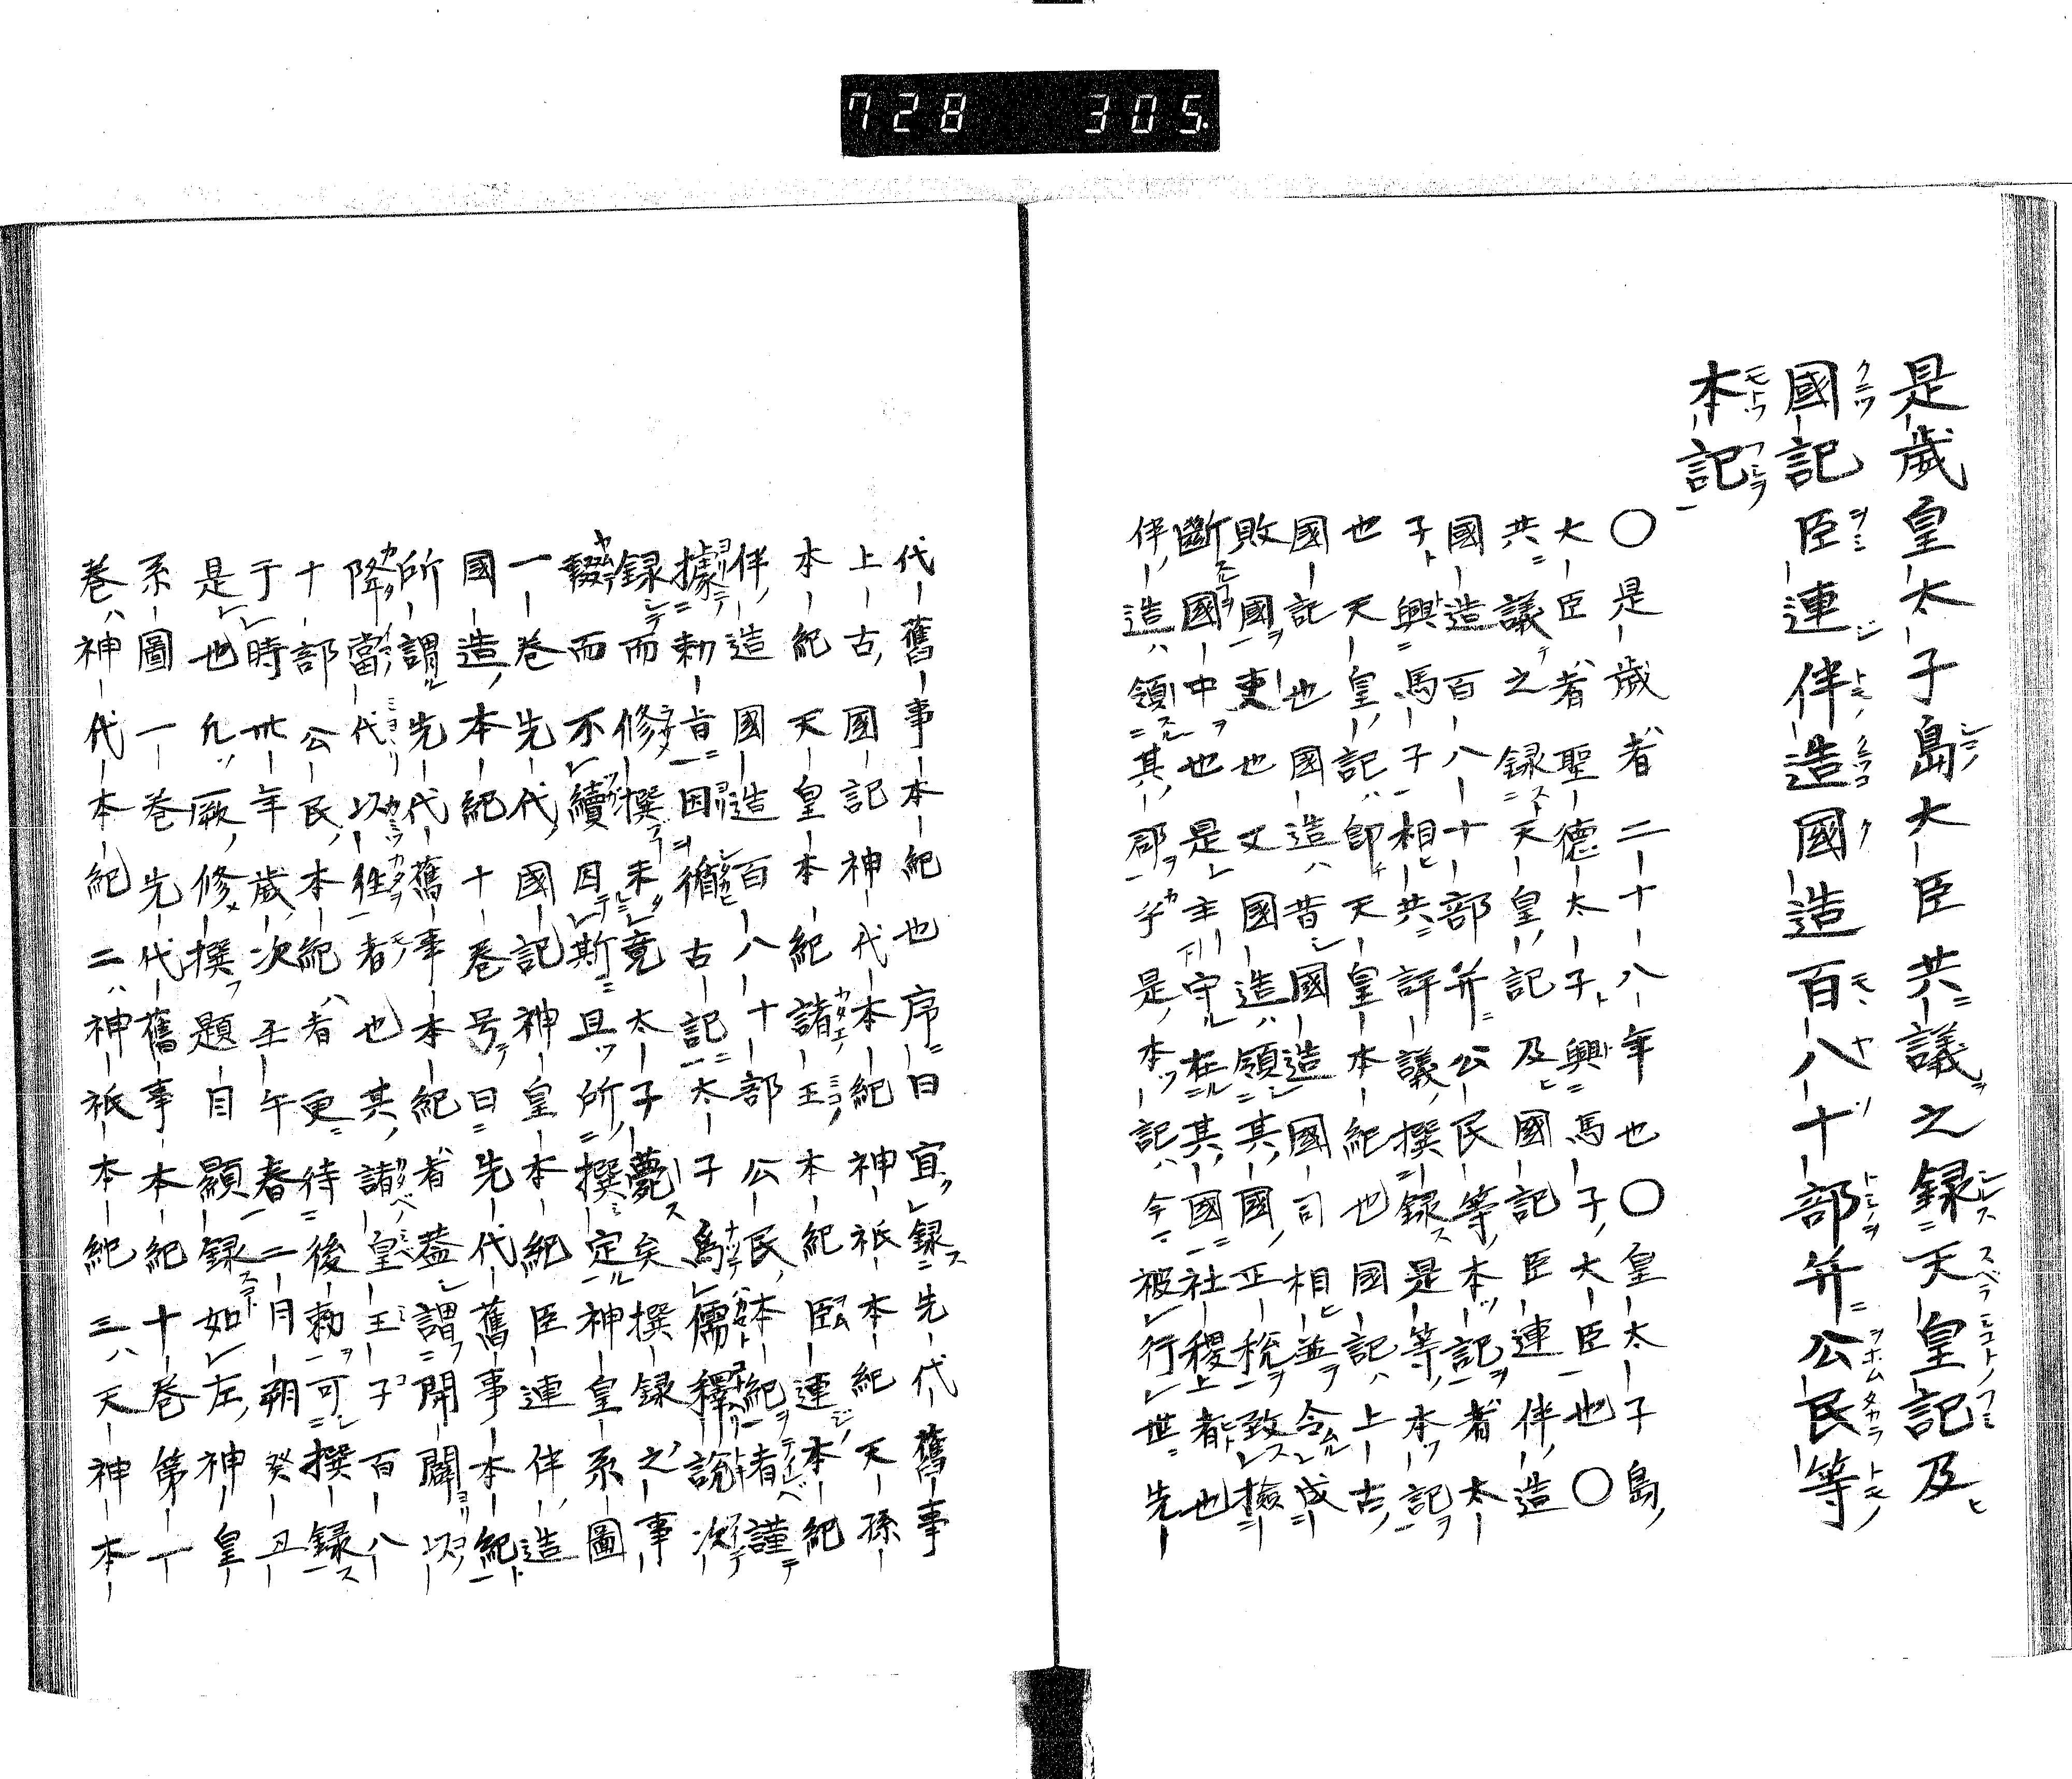 728 305.
是歳皇太子島大臣共議之録天皇記及
國記臣連伴造國造百八十部并公民等
本記
〇是歳者二十八年也〇皇太子島
大臣者聖德太子與馬子大臣也〇
共議之録天皇記及國記臣連伴造
國造百八十部并公民等本記者太
子與馬子相共評議撰録是等本記
也天皇記即天皇本紀也國記上古
國記也國造昔國造國司相並令成
敗國吏也又國造領其國正税致撿
斷國中也是主守在其國社稷者也
伴造領其郡乎是本記今被行世先
代舊事本紀也序曰宜録先代舊事
上古國記神代本紀神祇本紀天孫
本紀天皇本紀諸王本紀臣連本紀
伴造國造百八十部公民本紀者謹
據勅旨因循古記太子爲儒釋説次
録而修撰未竟太子薨矣撰録之事
輟而不續因斯且所撰定神皇系圖
一卷先代國記神皇本紀臣連伴造
國造本紀十卷号曰先代舊事本紀
所謂先代舊事本紀者葢謂開闢以
降當代以往者也其諸皇王子百八
十部公民本紀者更待後勅可撰録
于時卅年歳次壬午春二月朔癸丑
是也凡厥修撰題目顯録如左神皇
系圖一卷先代舊事本紀十卷第一
卷神代本紀二神祇本紀三天神本